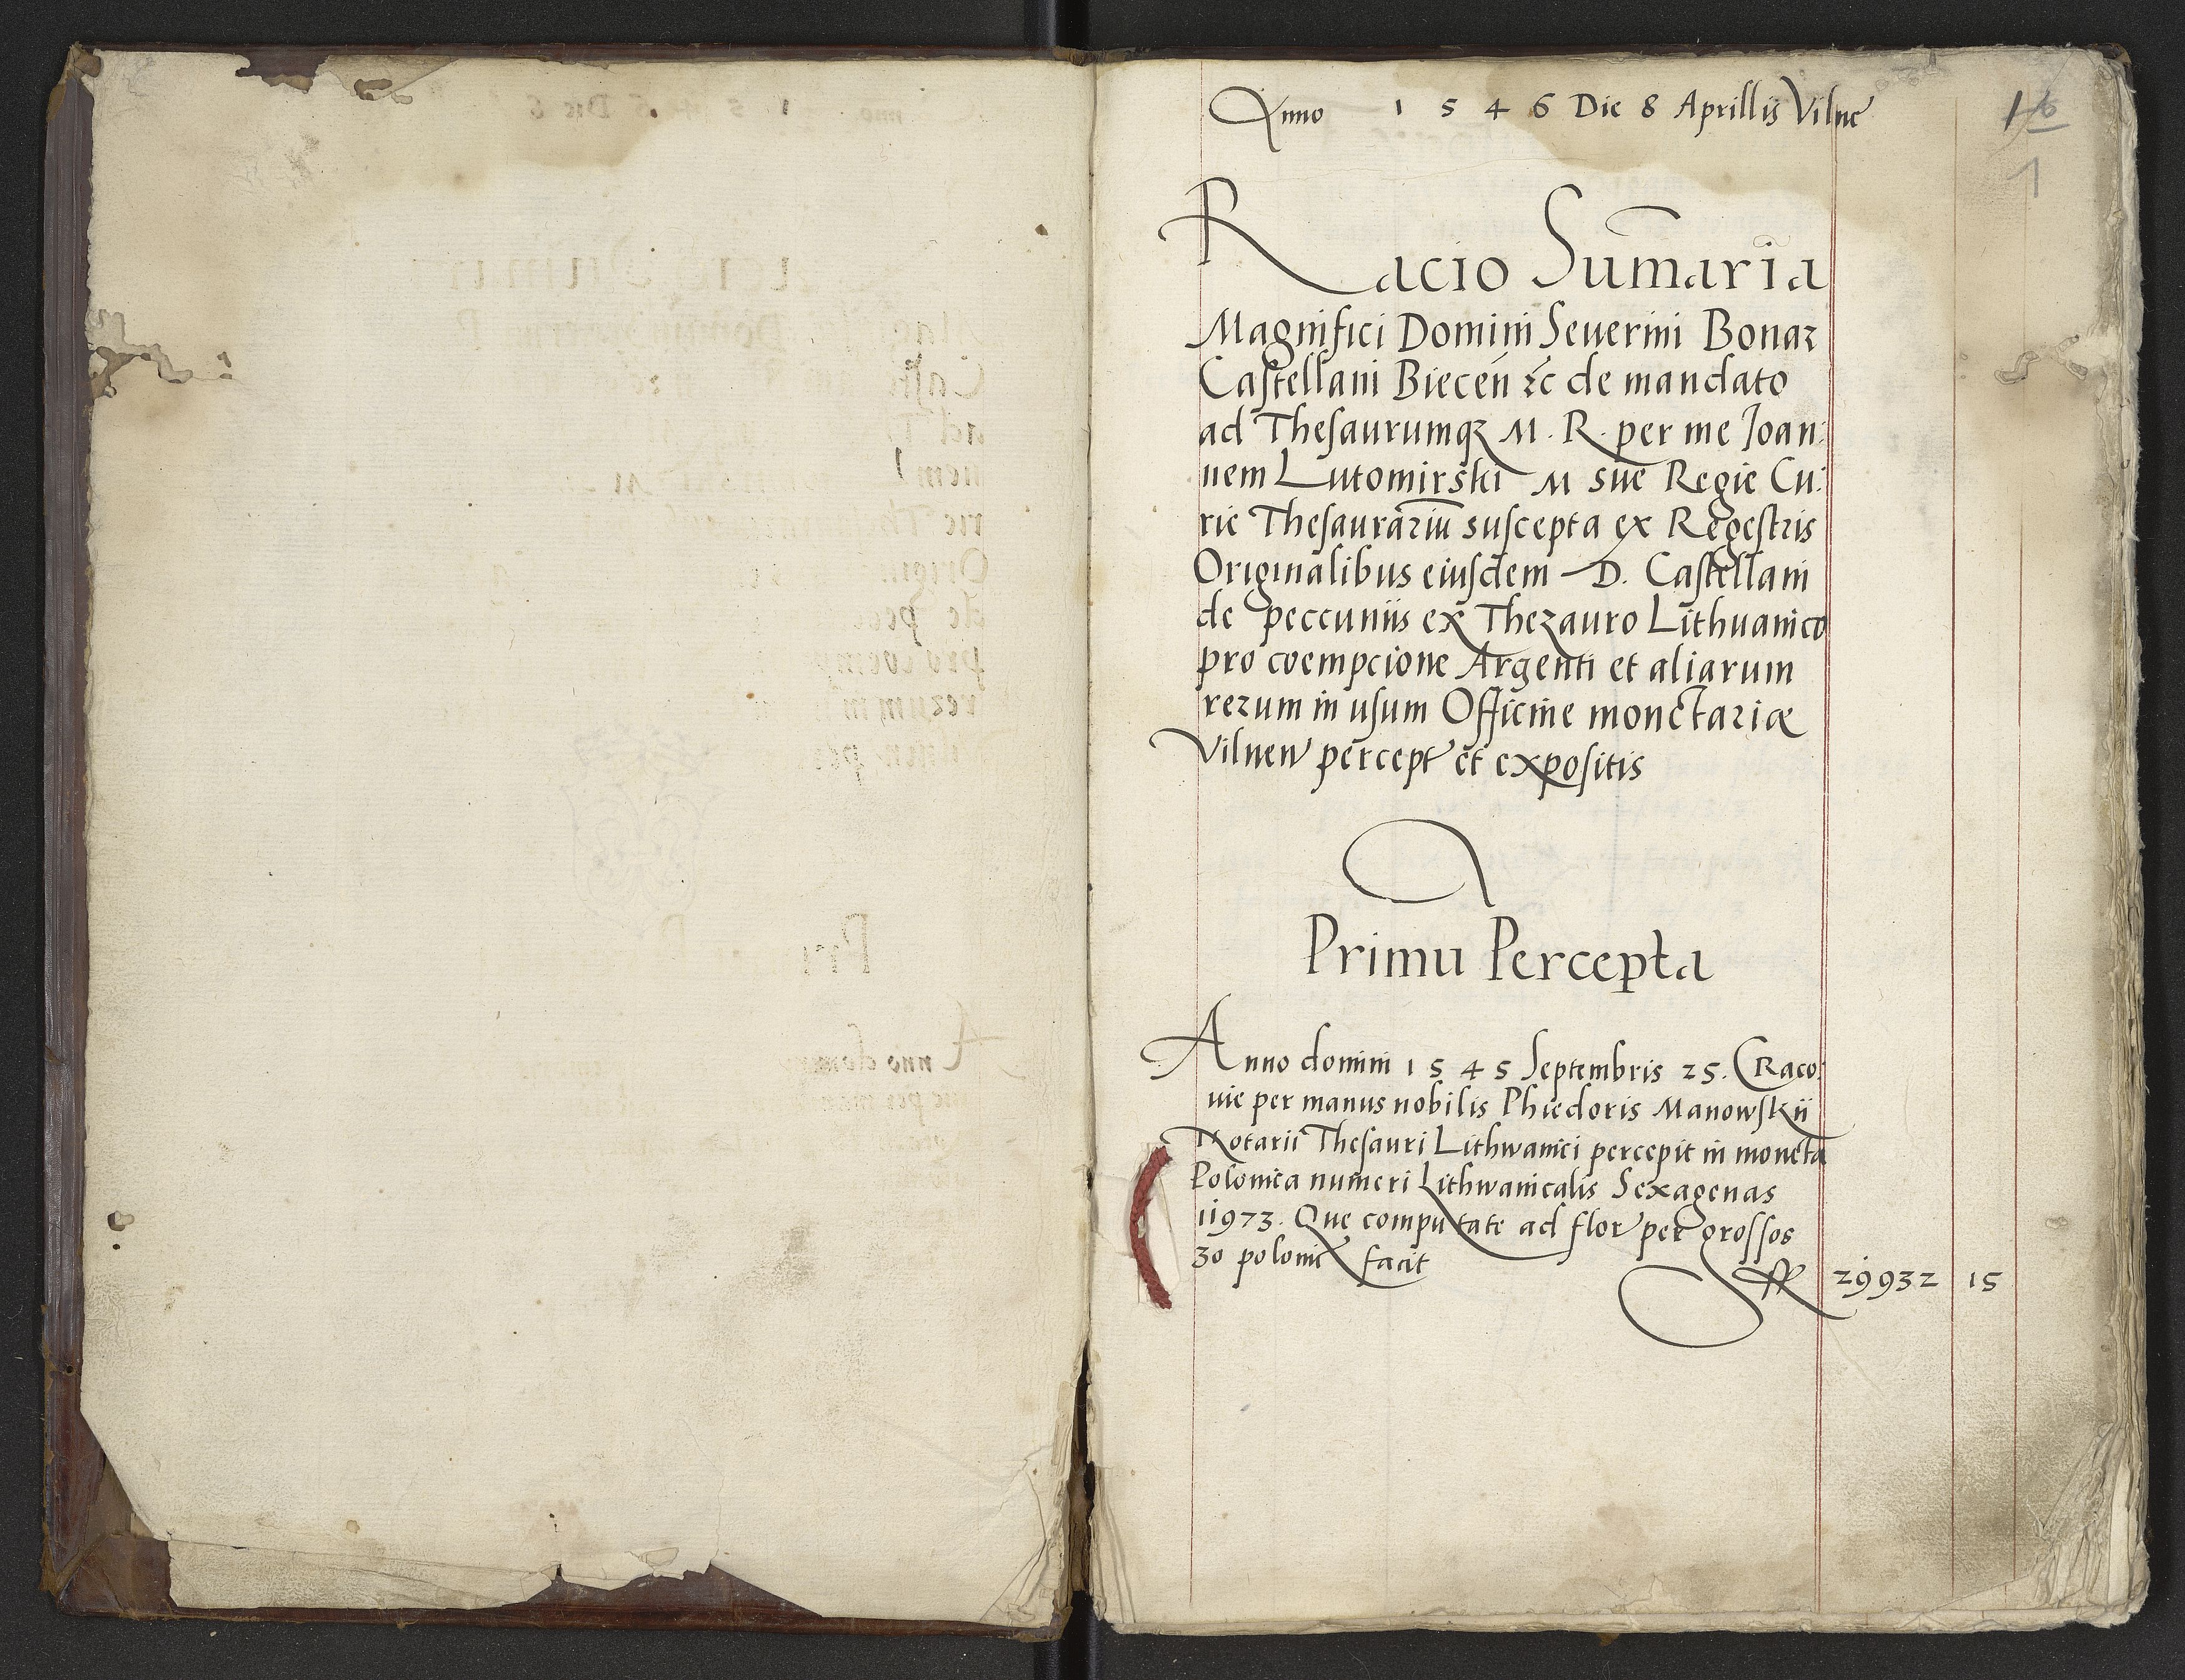 Anno 1 5 4 6 Die 8 Aprillis Vilne
1
Racio Sum̃aria
Magnifici Domini Seuerini Bonar
Castellani Biecen̄ ⁊c̃ de mandato
ad Thesaurumqꝫ M. R. per me Joan:
nem Lutomirski M sue Regie Cu:
rie Thesaurariū suscepta ex Regestris
Originalibus eiusdem D. Castellani
de peccuniis ex Thezauro Lithuanico
pro coempcione Argenti et aliarum
rerum in usum Officine monetariæ
Vilnen percept et expositis
Primu Percepta
Anno domini 1 5 4 5 Septembris 25. Craco:
uie per manus nobilis Phiedoris Manowskii
Notarii Thesauri Lithwanici percepit in moneta
Polonica numeri Lithwanicalis Sexagenas
11973. Que computate ad flor per grossos
30 polonic facit
ff 29932 15